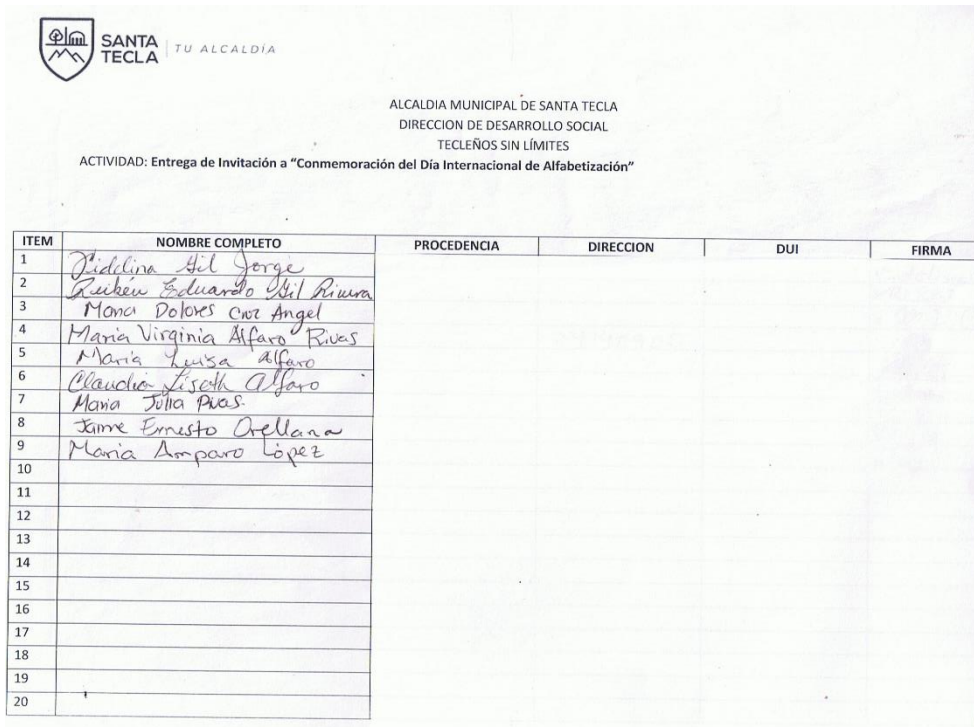 SANTA TECLA
TU ALCALDÍA
ALCALDIA MUNICIPAL DE SANTA TECLA
DIRECCION DE DESARROLLO SOCIAL
TECLEÑOS SIN LÍMITES
ACTIVIDAD: Entrega de Invitación a “Conmemoración del Día Internacional de Alfabetización”
ITEM NOMBRE COMPLETO PROCEDENCIA DIRECCION DUI FIRMA
1 Fidelina Gil Jorge
2 Rubén Eduardo Gil Rivera
3 Maria Dolores Cruz Angel
4 Maria Virginia Alfaro Rivas
5 Maria Luisa Alfaro
6 Claudia Liseth Alfaro
7 Maria Julia Rivas.
8 Jaime Ernesto Orellana
9 Maria Amparo López
10
11
12
13
14
15
16
17
18
19
20